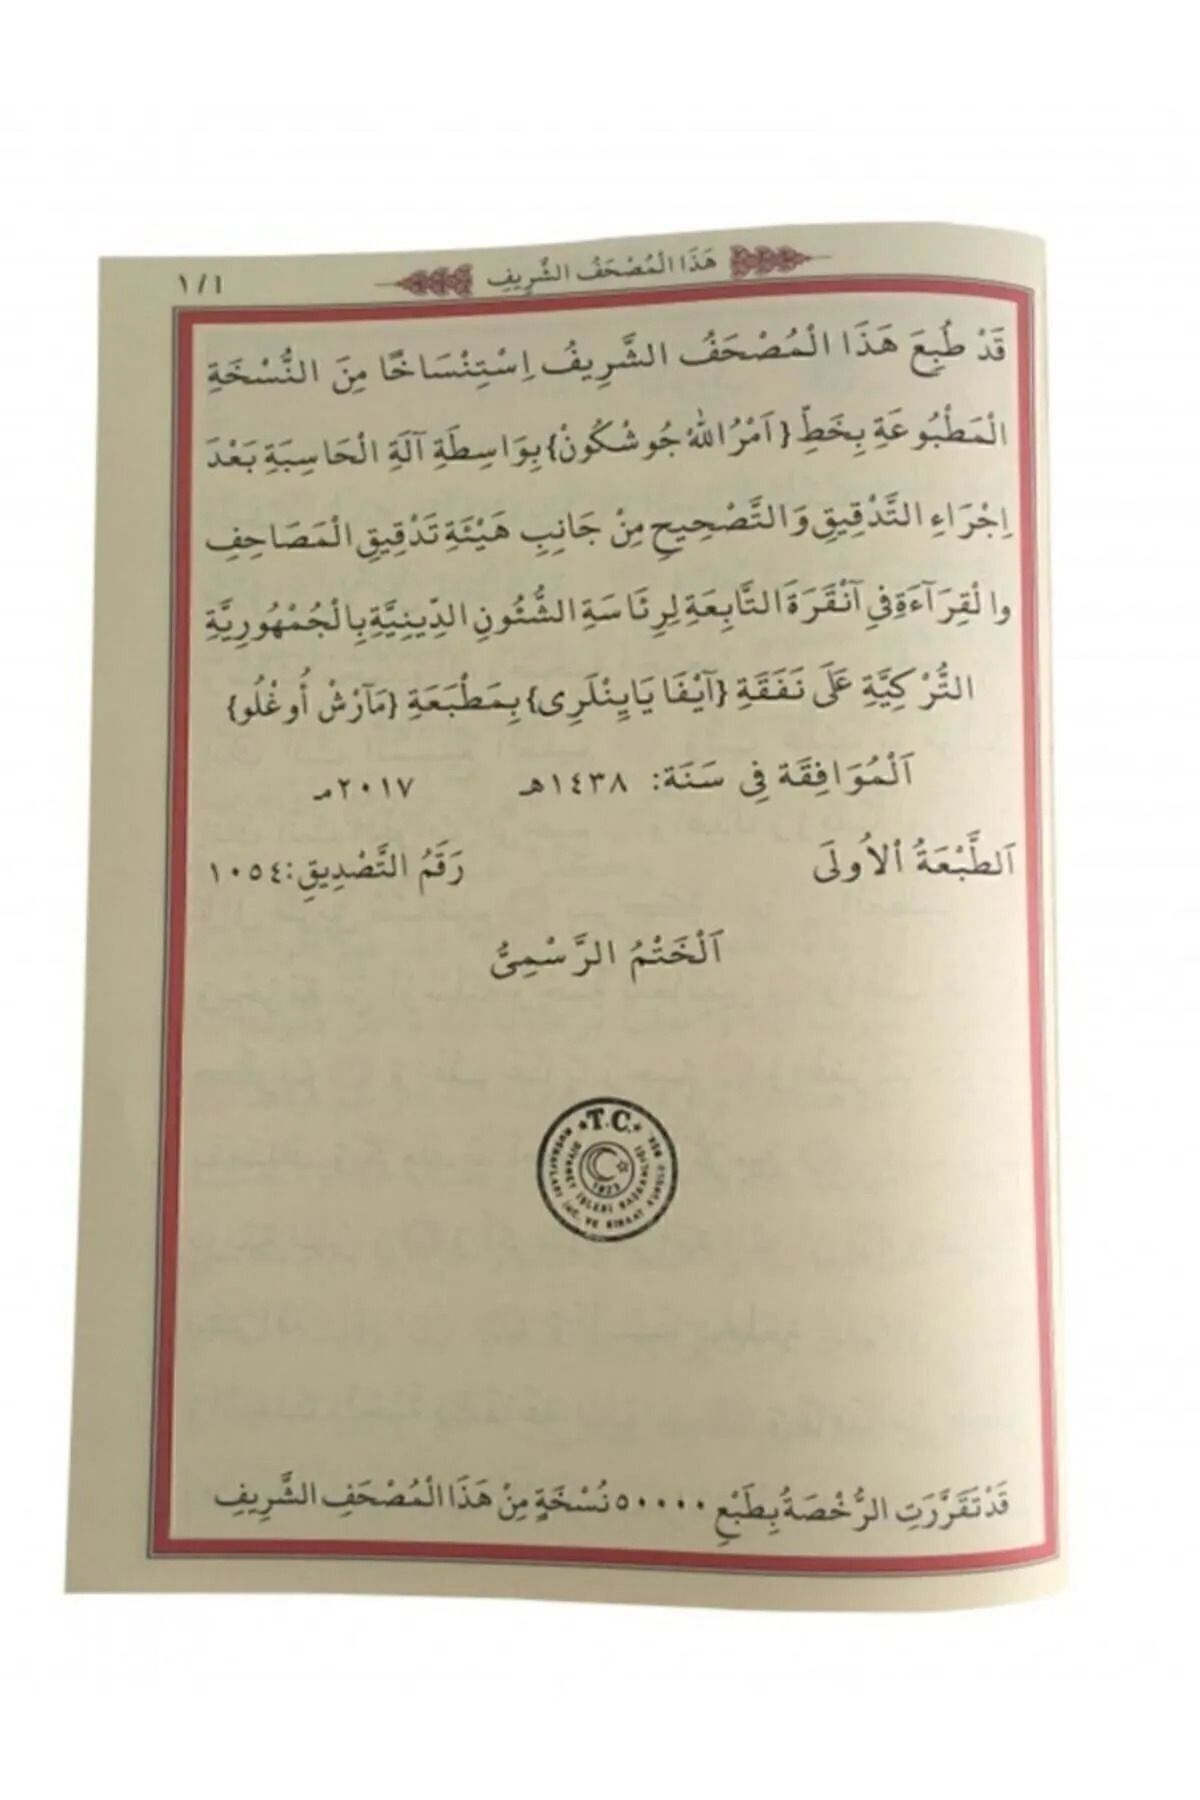 هَذَا الْمُصْحَفُ الشَّرِيفِ
١/١
قَدْ طُبِعَ هَذَا الْمُصْحَفُ الشَّرِيفُ اِسْتِنْسَاخًا مِنَ النُّسْخَةِ
الْمَطْبُوعَةِ بِخَطِّ {اَمْرُاللهْ جُوشْكُونْ} بِوَاسِطَةِ آلَةِ الْحَاسِبَةِ بَعْدَ
اِجْرَاءِ التَّدْقِيقِ وَالتَّصْحِيحِ مِنْ جَانِبِ هَيْئَةِ تَدْقِيقِ الْمَصَاحِفِ
والْقِرَآءَةِ فِي آنْقَرَةَ التَّابِعَةِ لِرِئَاسَةِ الشُّئُونِ الدِّينِيَّةِ بِالْجُمْهُورِيَّةِ
التُّرْكِيَّةِ عَلَى نَفَقَةِ {آيْفَا يَايِنْلَرِى} بِمَطْبَعَةِ {مَآرْشْ أُوغْلُو}
اَلْمُوَافِقَة فِي سَنَة: ١٤٣٨هـ ٢٠١٧مـ
اَلطَّبْعَةُ اْلاُولَى رَقَمُ التَّصْدِيقِ: ١٠٥٤
اَلْخَتْمُ الرَّسْمِىُّ
T.C.
DİYANET İŞLERİ BAŞKANLIĞI
MUSHAFLARI İNC. VE KIRAAT KURULU BŞK.
1923
قَدْتَقَرَّرَتِ الرُّخْصَةُ بِطَبْعِ ٥٠٠٠٠ نُسْخَةٍ مِنْ هَذَا الْمُصْحَفِ الشَّرِيفِ